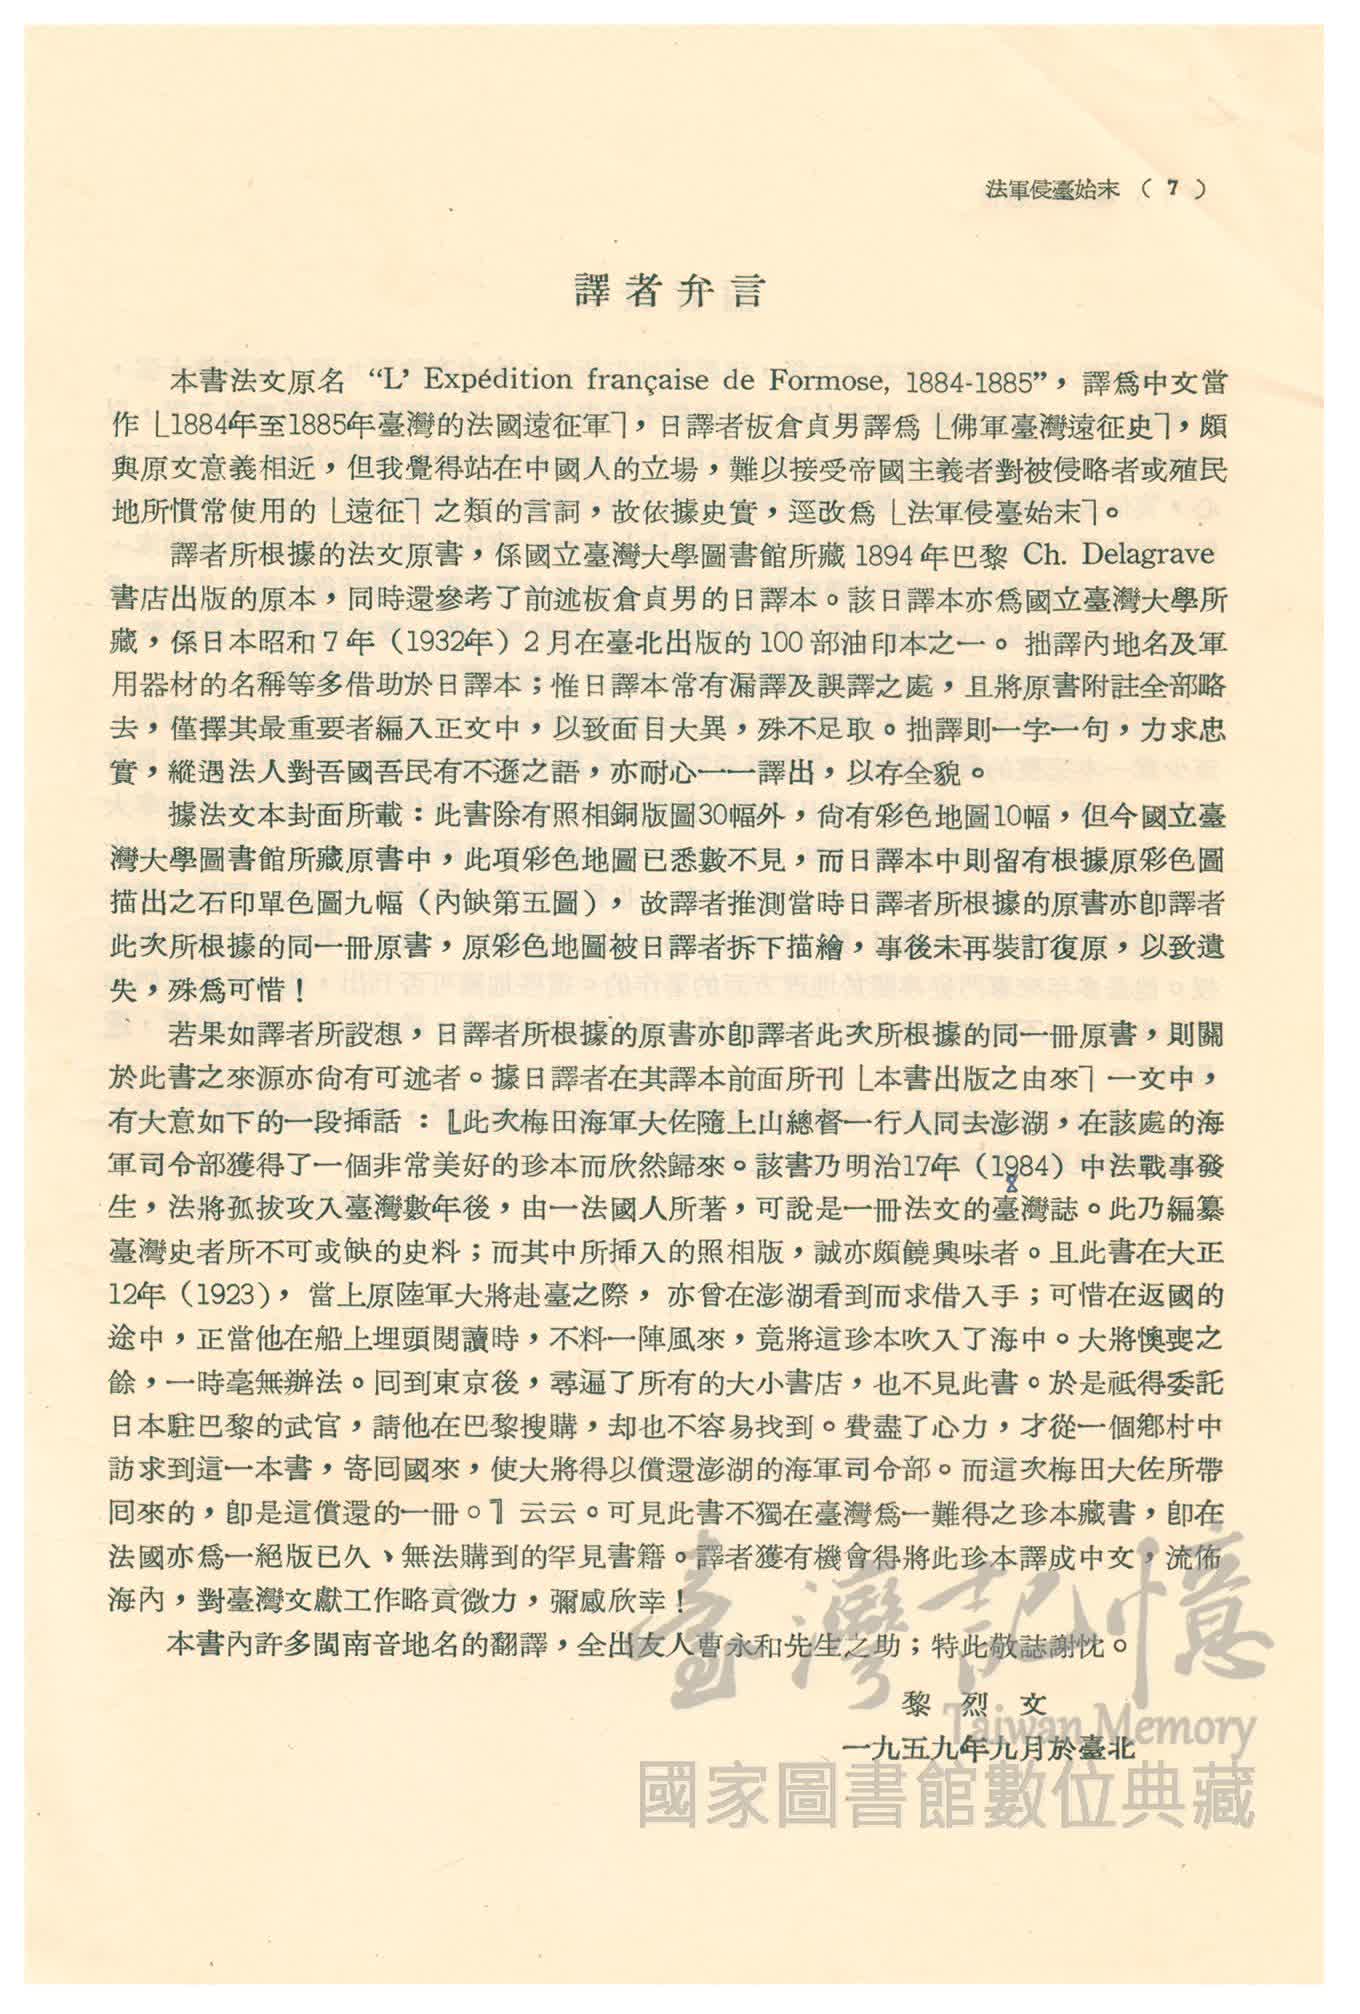 法軍侵臺始末 （ 7 ）
譯者弁言
本書法文原名 “L’ Expédition française de Formose, 1884-1885”，譯爲中文當
作⌊1884年至1885年臺灣的法國遠征軍⌉，日譯者板倉貞男譯爲⌊佛軍臺灣遠征史⌉，頗
與原文意義相近，但我覺得站在中國人的立場，難以接受帝國主義者對被侵略者或殖民
地所慣常使用的⌊遠征⌉之類的言詞，故依據史實，逕改爲⌊法軍侵臺始末⌉。
譯者所根據的法文原書，係國立臺灣大學圖書館所藏 1894 年巴黎 Ch. Delagrave
書店出版的原本，同時還參考了前述板倉貞男的日譯本。該日譯本亦爲國立臺灣大學所
藏，係日本昭和 7 年（1932年）2 月在臺北出版的 100 部油印本之一。 拙譯內地名及軍
用器材的名稱等多借助於日譯本；惟日譯本常有漏譯及誤譯之處，且將原書附註全部略
去，僅擇其最重要者編入正文中，以致面目大異，殊不足取。拙譯則一字一句，力求忠
實，縱遇法人對吾國吾民有不遜之語，亦耐心一一譯出，以存全貌。
據法文本封面所載：此書除有照相銅版圖30幅外，尙有彩色地圖10幅，但今國立臺
灣大學圖書館所藏原書中，此項彩色地圖已悉數不見，而日譯本中則留有根據原彩色圖
描出之石印單色圖九幅（內缺第五圖），故譯者推測當時日譯者所根據的原書亦卽譯者
此次所根據的同一冊原書，原彩色地圖被日譯者拆下描繪，事後未再裝訂復原，以致遺
失，殊爲可惜！
若果如譯者所設想，日譯者所根據的原書亦卽譯者此次所根據的同一冊原書，則關
於此書之來源亦尙有可述者。據日譯者在其譯本前面所刊⌊本書出版之由來⌉一文中，
有大意如下的一段揷話：⟦此次梅田海軍大佐隨上山總督一行人同去澎湖，在該處的海
軍司令部獲得了一個非常美好的珍本而欣然歸來。該書乃明治17年（1984）中法戰事發
8
生，法將孤拔攻入臺灣數年後，由一法國人所著，可說是一冊法文的臺灣誌。此乃編纂
臺灣史者所不可或缺的史料；而其中所揷入的照相版，誠亦頗饒興味者。且此書在大正
12年（1923），當上原陸軍大將赴臺之際， 亦曾在澎湖看到而求借入手；可惜在返國的
途中，正當他在船上埋頭閱讀時，不料一陣風來，竟將這珍本吹入了海中。大將懊喪之
餘，一時毫無辦法。囘到東京後，尋遍了所有的大小書店，也不見此書。於是祇得委託
日本駐巴黎的武官，請他在巴黎搜購，却也不容易找到。費盡了心力，才從一個鄉村中
訪求到這一本書，寄囘國來，使大將得以償還澎湖的海軍司令部。而這次梅田大佐所帶
囘來的，卽是這償還的一冊。⟧云云。可見此書不獨在臺灣爲一難得之珍本藏書，卽在
法國亦爲一絕版已久、無法購到的罕見書籍。譯者獲有機會得將此珍本譯成中文，流佈
海內，對臺灣文獻工作略貢微力，彌感欣幸！
本書內許多閩南音地名的翻譯，全出友人曹永和先生之助；特此敬誌謝忱。
黎 烈 文
一九五九年九月於臺北
臺灣記憶
Taiwan Memory
國家圖書館數位典藏